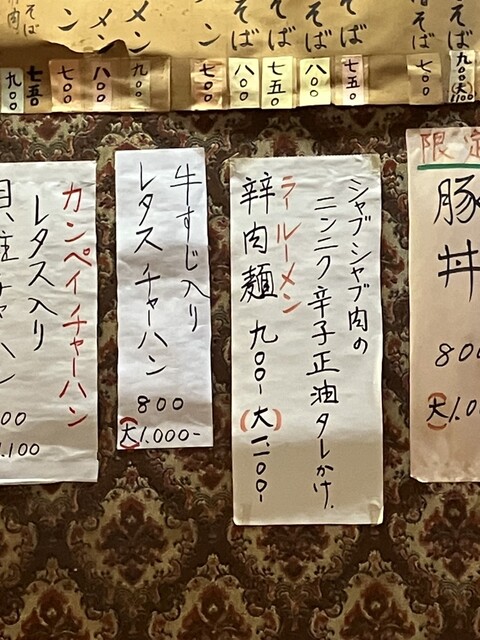 限定
豚
丼
800
大 1.00
シャブシャブ肉の
ニンニク辛子正油タレかけ.
ラールーメン
辣肉麺 九〇〇- (大)一、一〇〇-
牛すじ入り
レタス チャーハン
800
(大)1.000-
カンペイチャーハン
レタス入り
00
1.100
そば
そば
そば
そば
そば
メン
ン
メン
九〇〇(大)1100
七〇〇
七五〇
八〇〇
七五〇
八〇〇
七〇〇
九〇〇
八〇〇
七〇〇
七五〇
九〇〇